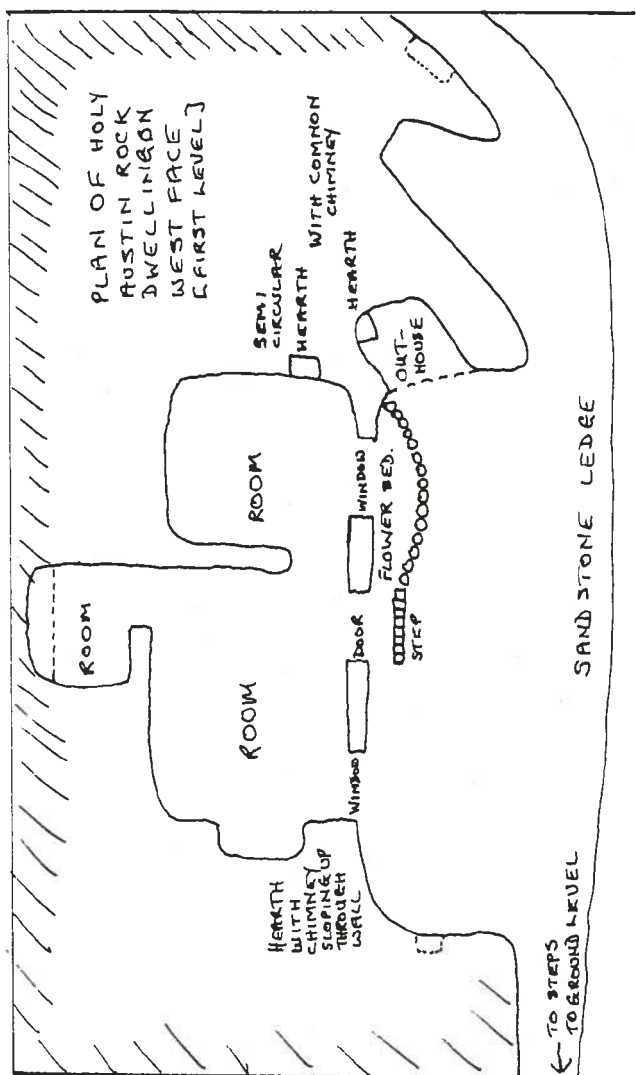 PLAN OF HOLY
AUSTIN ROCK
DWELLINGON
WEST FACE
[FIRST LEVEL]
SEMI
CIRCULAR
HEARTH
WITH COMMON
CHIMNEY
HEARTH
OUT-
HOUSE
ROOM
ROOM
ROOM
WINDOW
FLOWER BED.
DOOR
STEP
WINDOW
HEARTH
WITH
CHIMNEY
SLOPING UP
THROUGH
WALL
SANDSTONE LEDGE
← TO STEPS
TO GROUND LEVEL